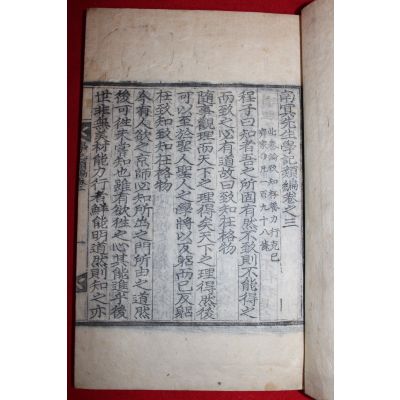 南冥先生學記類編卷之三
此卷論致知存養力行克己
凡一百九十八條
程子曰知者吾之所固有然不致則不能得之
而致知必有道故曰致知在格物
隨事觀理而天下之理得矣天下之理得然後
可以至於聖人聖人之學將以反躬而已反躬
在致知致知在格物
今有人欲之京師必知所出之門所由之道然
後可往未嘗知也雖有欲往之心其能進乎後
世非無美材能力行者鮮能明道然則知之亦